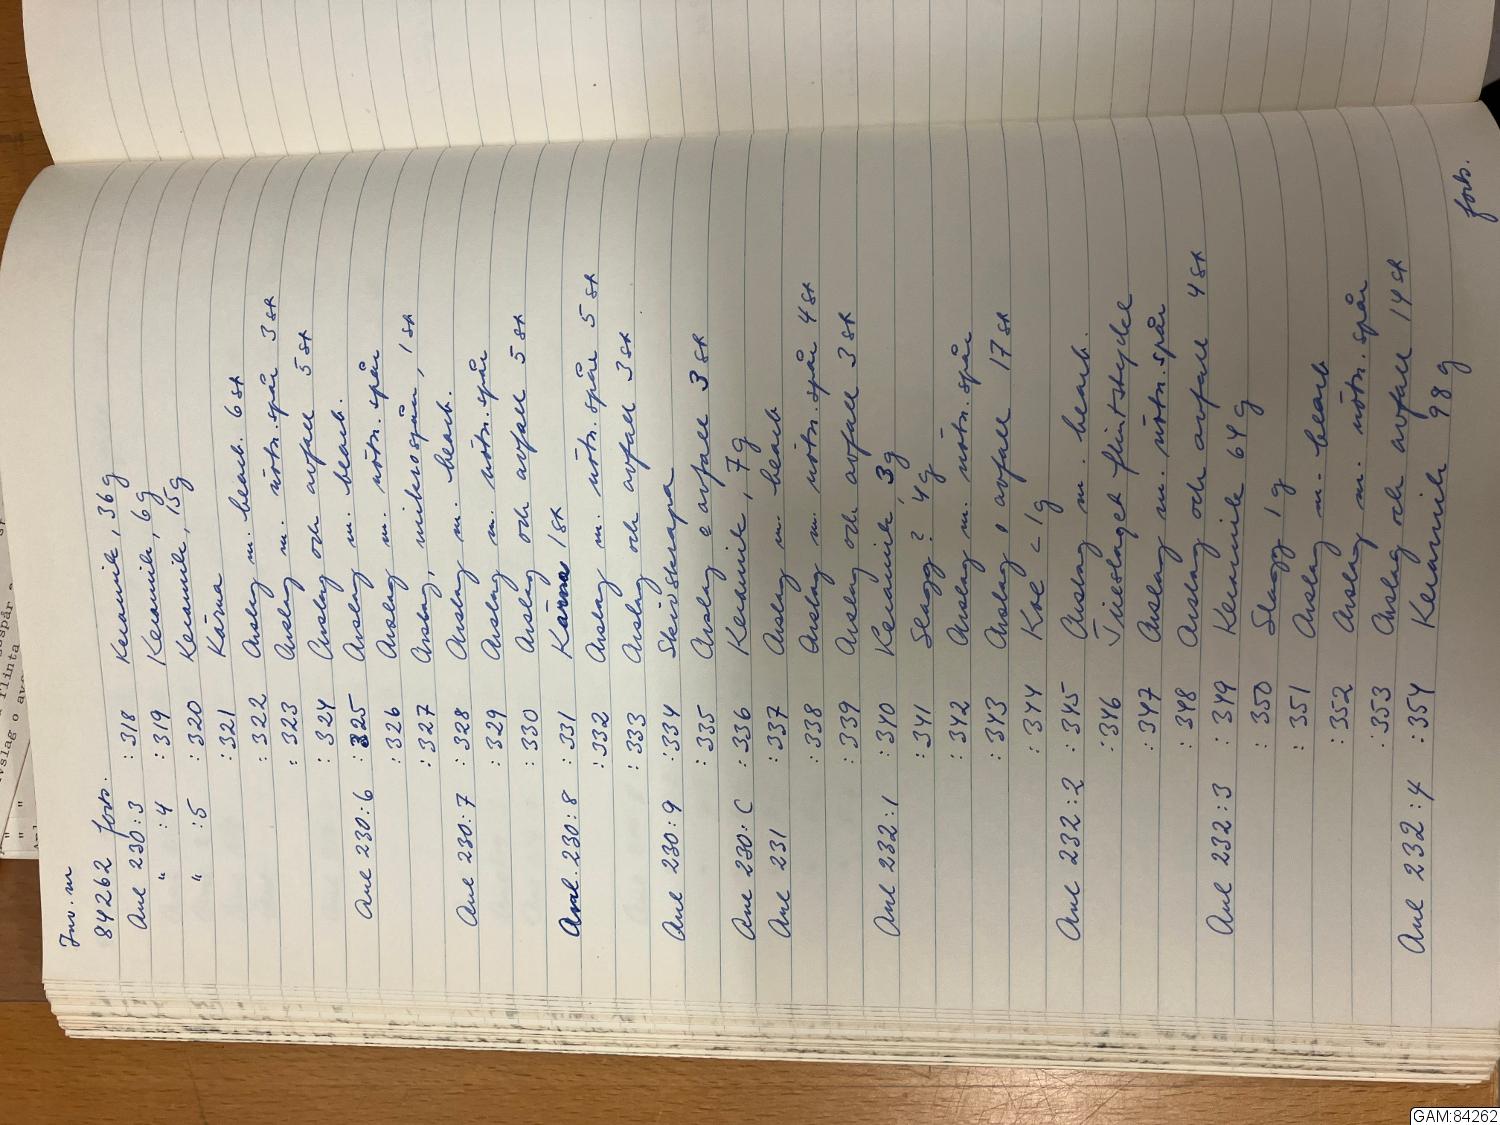 Inv. nr
84262 forts.
Anl 230:3 :318 Keramik, 36g
" :4 :319 Keramik, 6g
" :5 :320 Keramik, 15g
:321 Kärna
:322 Avslag m. bearb. 6 st
:323 Avslag m. nötn.spår 3 st
:324 Avslag och avfall 5 st
Anl 230:6 :325 Avslag m. bearb.
:326 Avslag m. nötn.spår
:327 Avslag, mikrospån, 1 st
Anl 230:7 :328 Avslag m. bearb.
:329 Avslag m. nötn.spår
:330 Avslag och avfall 5 st
Anl. 230:8 :331 Kärna 1 st
:332 Avslag m. nötn.spår 5 st
:333 Avslag och avfall 3 st
Anl 230:9 :334 Skivskrapa
:335 Avslag o avfall 3 st
Anl 230:C :336 Keramik, 7g
Anl 231 :337 Avslag m. bearb
:338 Avslag m. nötn.spår 4 st
:339 Avslag och avfall 3 st
Anl 232:1 :340 Keramik, 3g
:341 Slagg? 4g
:342 Avslag m. nötn.spår
:343 Avslag, avfall 17 st
:344 Kol < 1g
Anl 232:2 :345 Avslag m. bearb.
:346 Tillslaget flintstycke
:347 Avslag m. nötn.spår
:348 Avslag och avfall 4 st
Anl 232:3 :349 Keramik 64 g
:350 Slagg 1g
:351 Avslag m. bearb
:352 Avslag m. nötn.spår
:353 Avslag och avfall 14 st
Anl 232:4 :354 Keramik 98 g
forts.
GAM:84262